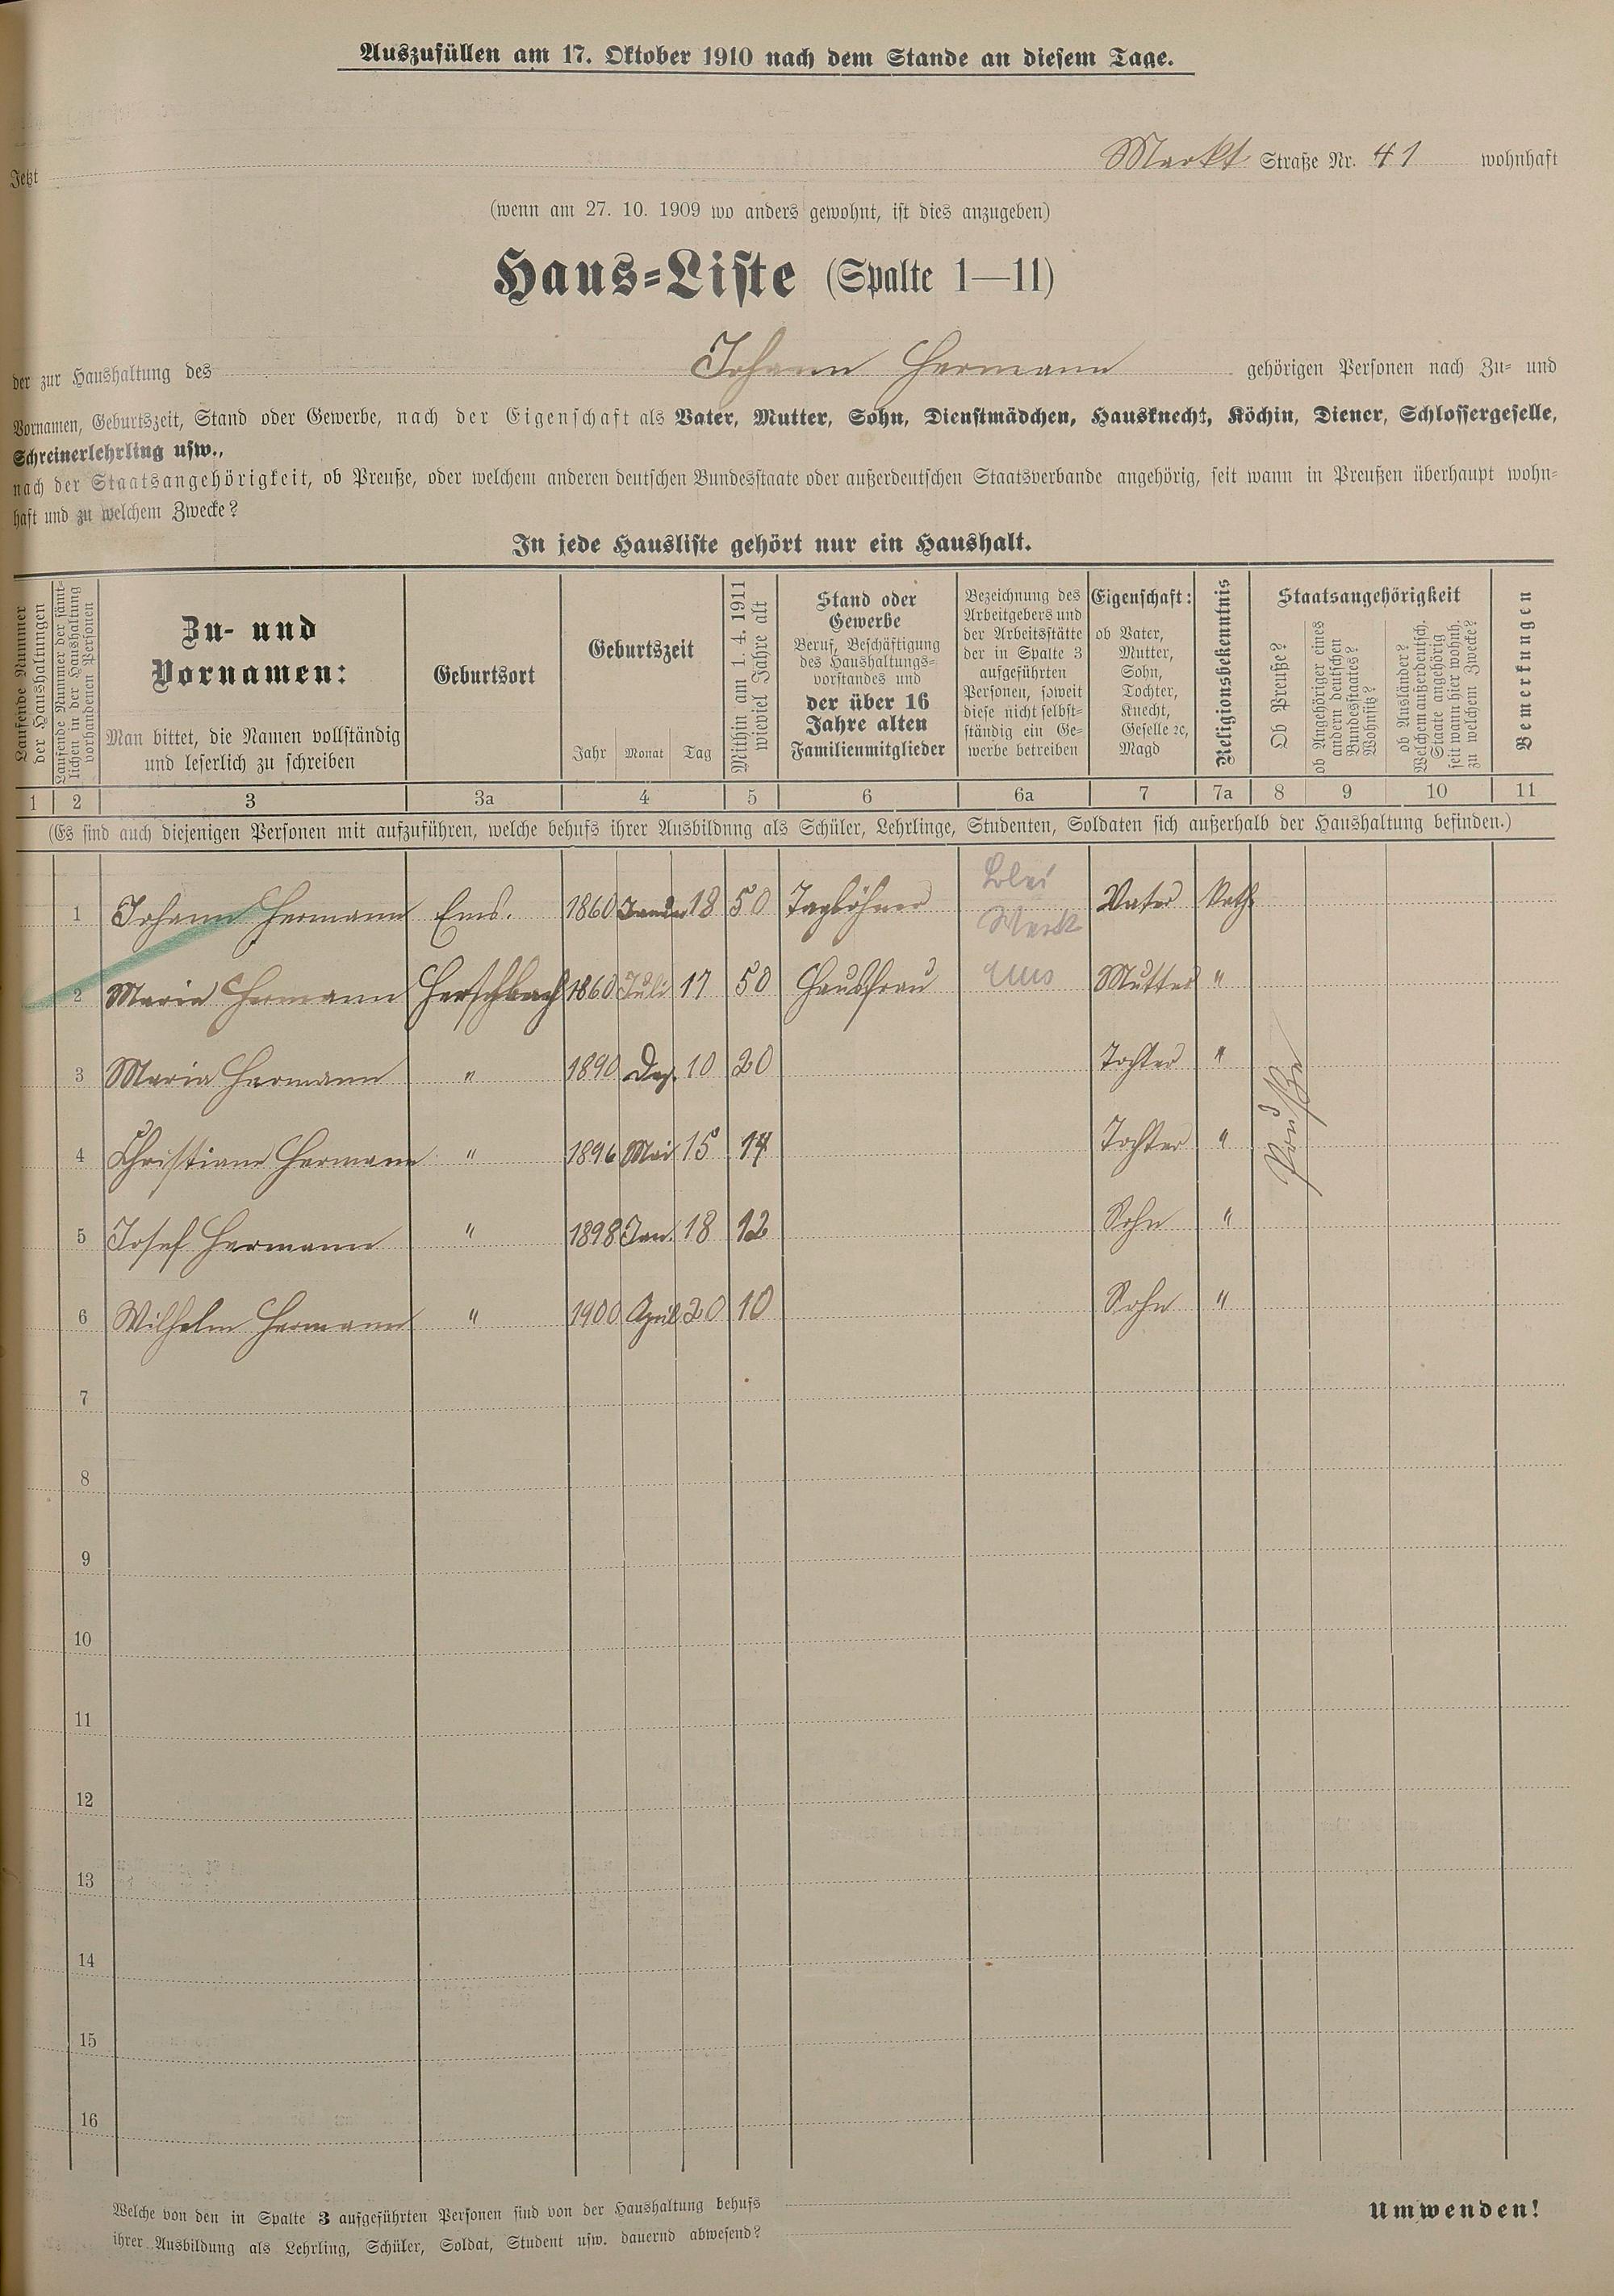 Auszufüllen am 17. Oktober 1910 nach dem Stande an diesem Tage.
Jetzt Markt Straße Nr. 41 wohnhaft
(wenn am 27. 10. 1909 wo anders gewohnt, ist dies anzugeben)
Haus-Liste (Spalte 1—11)
der zur Haushaltung des Johann Hermann gehörigen Personen nach Zu- und
Vornamen, Geburtszeit, Stand oder Gewerbe, nach der Eigenschaft als Vater, Mutter, Sohn, Dienstmädchen, Hausknecht, Köchin, Diener, Schlossergeselle,
Schreinerlehrling usw.,
nach der Staatsangehörigkeit, ob Preuße, oder welchem anderen deutschen Bundesstaate oder außerdeutschen Staatsverbande angehörig, seit wann in Preußen überhaupt wohn-
haft und zu welchem Zwecke?
In jede Hausliste gehört nur ein Haushalt.
Laufende Nummer
der Haushaltungen
Laufende Nummer der sämt-
lichen in der Haushaltung
vorhandenen Personen
Zu- und
Vornamen:
Man bittet, die Namen vollständig
und leserlich zu schreiben
Geburtsort
Geburtszeit
Jahr Monat Tag
Mithin am 1. 4. 1911
wieviel Jahre alt
Stand oder
Gewerbe
Beruf, Beschäftigung
des Haushaltungs-
vorstandes und
der über 16
Jahre alten
Familienmitglieder
Bezeichnung des
Arbeitgebers und
der Arbeitsstätte
der in Spalte 3
aufgeführten
Personen, soweit
diese nicht selbst-
ständig ein Ge-
werbe betreiben
Eigenschaft:
ob Vater,
Mutter,
Sohn,
Tochter,
Knecht,
Geselle ꝛc,
Magd
Religionsbekenntnis
Staatsangehörigkeit
Ob Preuße?
ob Angehöriger eines
andern deutschen
Bundesstaates?
Wohnsitz?
ob Ausländer?
Welchem außerdeutsch.
Staate angehörig
seit wann hier wohnh.
zu welchem Zwecke?
Bemerkungen
1 2 3 3a 4 5 6 6a 7 7a 8 9 10 11
(Es sind auch diejenigen Personen mit aufzuführen, welche behufs ihrer Ausbildung als Schüler, Lehrlinge, Studenten, Soldaten sich außerhalb der Haushaltung befinden.)
1 Johann Hermann Ems. 1860 Januar 18 50 Taglöhner Werk Vater Kath.
2 Maria Hermann Herschbach 1860 Juli 17 50 Hausfrau Ems Mutter "
3 Maria Hermann " 1890 Dez. 10 20 Tochter "
4 Christiane Hermann " 1896 Mai 15 14 Tochter " Preuße
5 Josef Hermann " 1898 Jan. 18 12 Sohn "
6 Wilhelm Hermann " 1900 April 20 10 Sohn "
7
8
9
10
11
12
13
14
15
16
Welche von den in Spalte 3 aufgeführten Personen sind von der Haushaltung behufs
ihrer Ausbildung als Lehrling, Schüler, Soldat, Student usw. dauernd abwesend?
Umwenden!